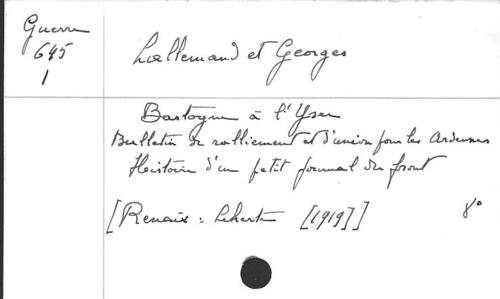 Guerre
645
1
Lallemand et Georges
Bastogne à l'Yser
Bulletin de ralliement et d'union pour les Ardennes
Histoire d'un petit journal du front
[Renaix : Leherte [1919]] 8°